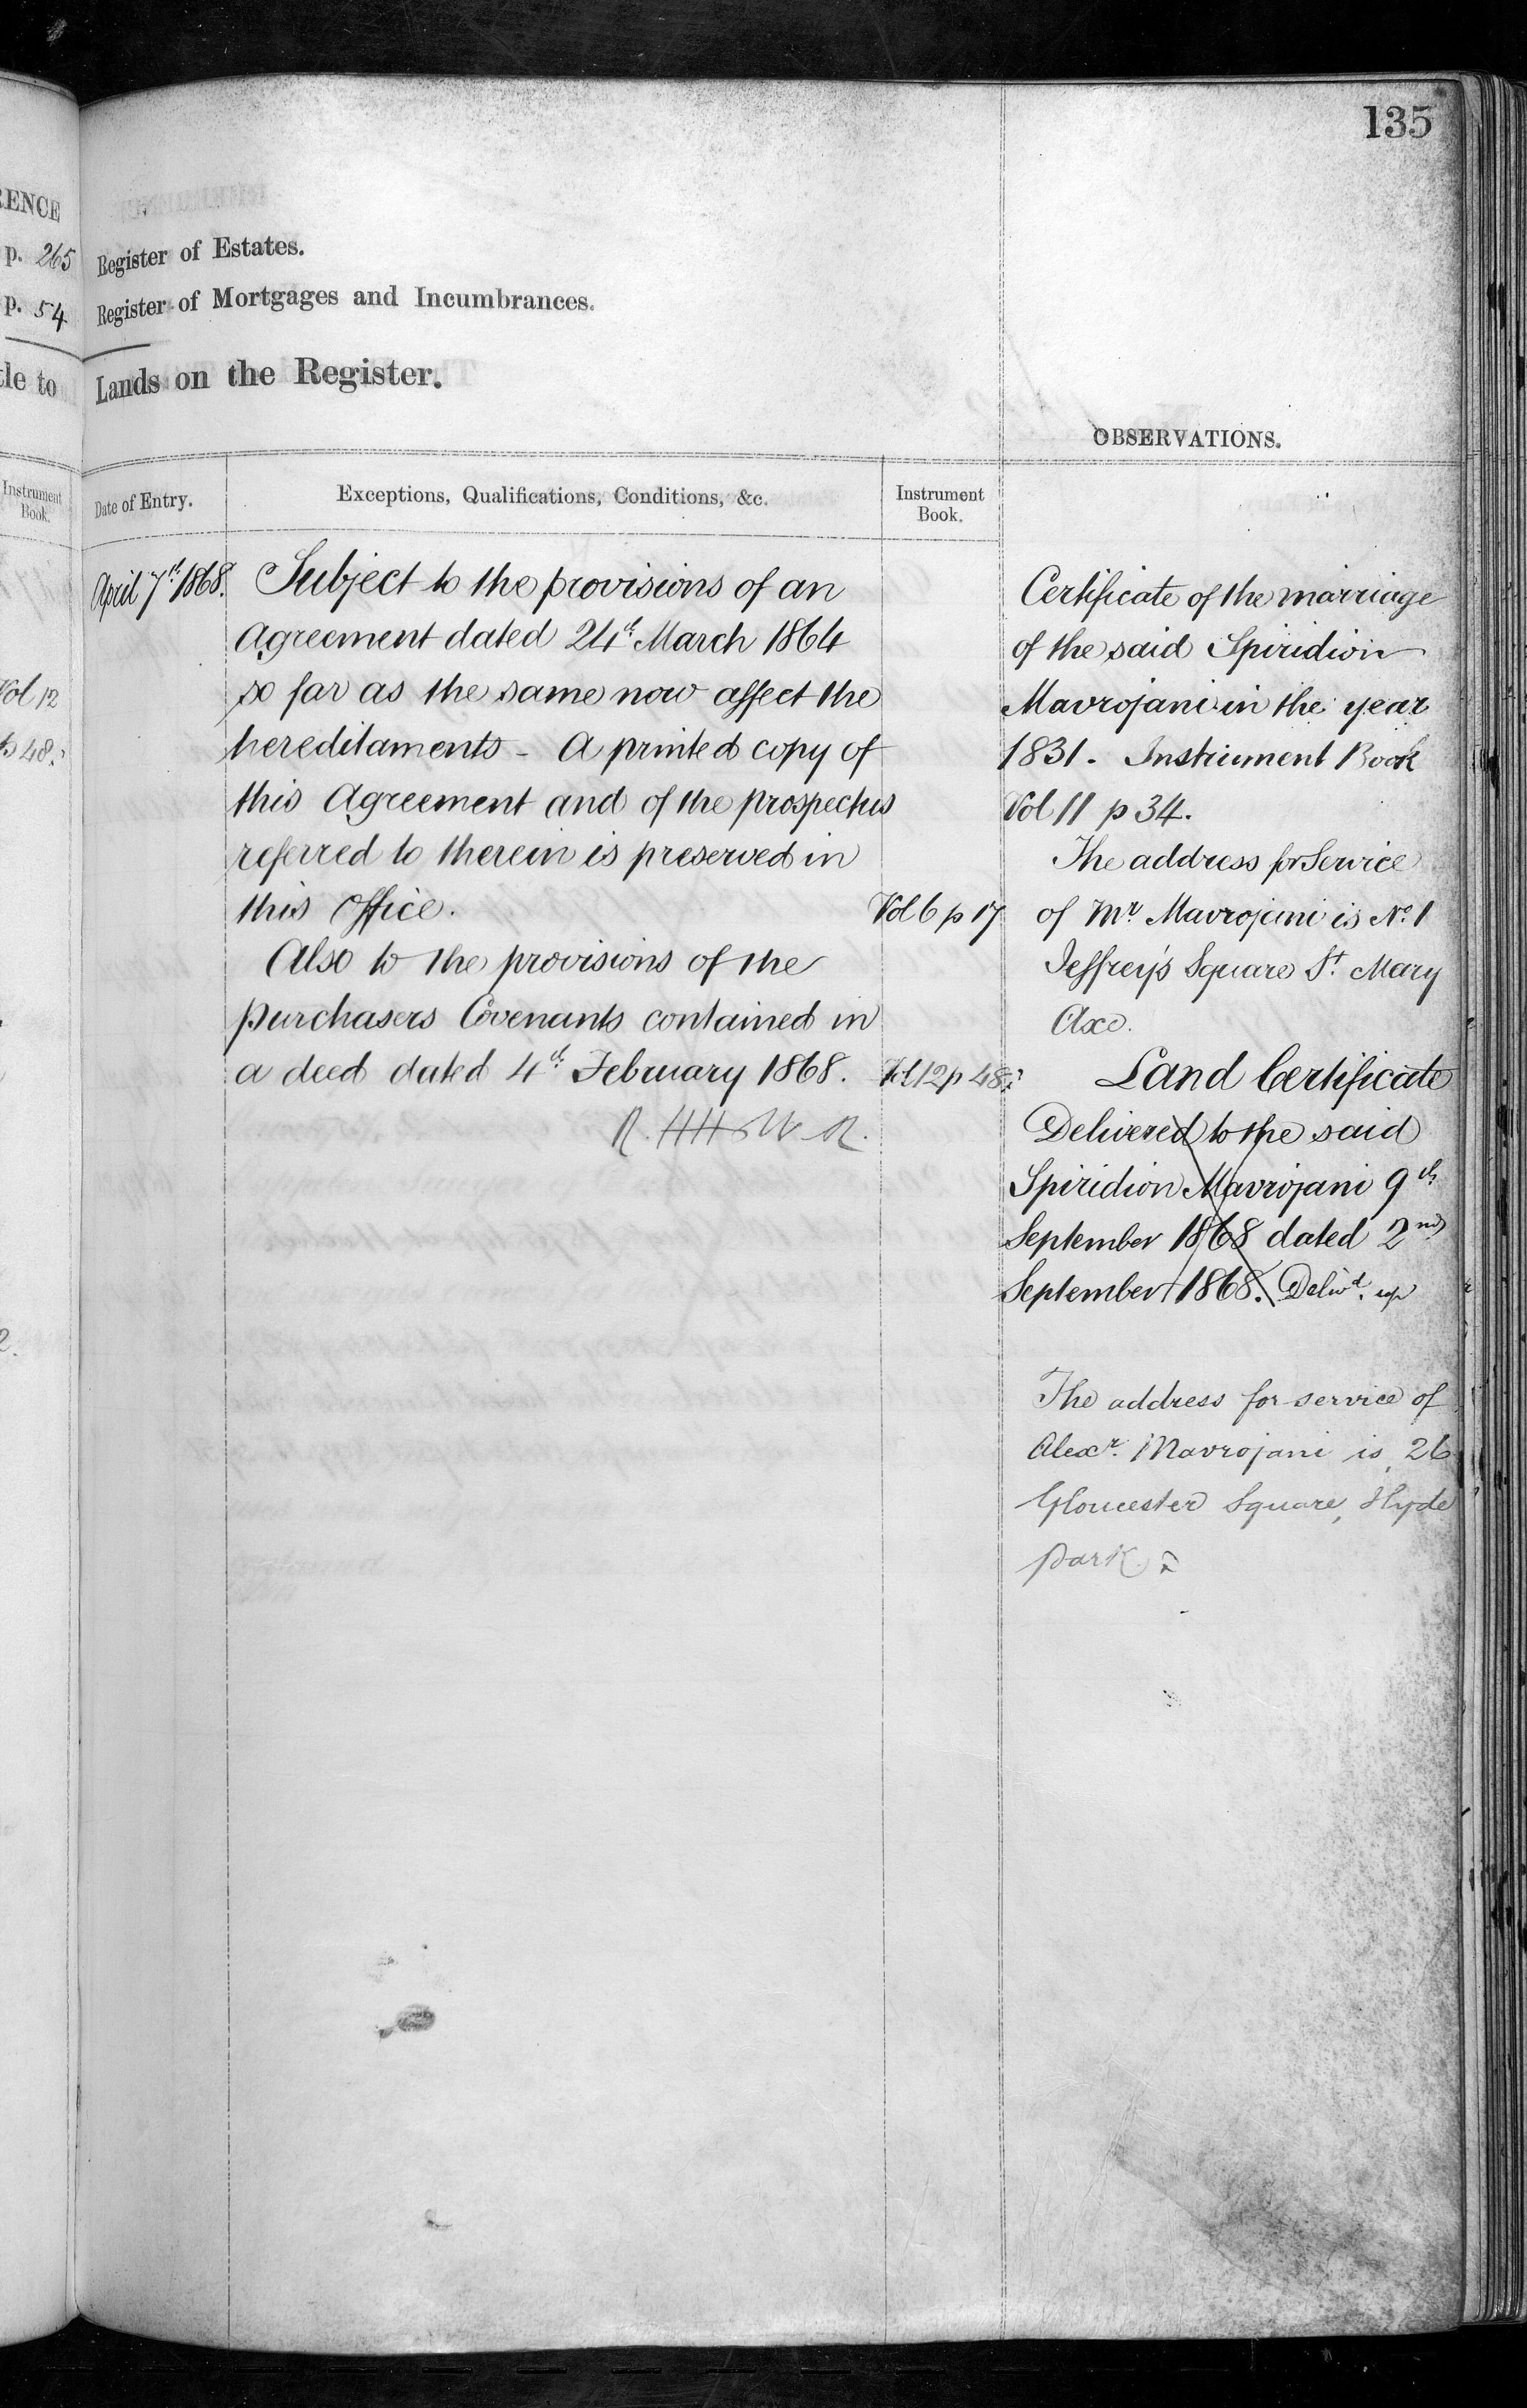 135
RENCE
p. 265
p. 54
tle to
Instrument
Book.
Vol 12
p 48
Register of Estates.
Register of Mortgages and Incumbrances.
Lands on the Register.
OBSERVATIONS.
Date of Entry.
Exceptions, Qualifications, Conditions, &c.
Instrument
Book.
April 7th 1868.
Subject to the provisions of an
Agreement dated 24th March 1864
so far as the same now affect the
hereditaments - A printed copy of
this Agreement and of the prospectus
referred to therein is preserved in
this Office.
Vol 6 p 17
Also to the provisions of the
purchasers Covenants contained in
a deed dated 4th February 1868.
Vol 12 p 48
Certificate of the marriage
of the said Spiridion
Mavrojani in the year
1831. Instrument Book
Vol 11 p 34.
The address for Service
of Mr. Mavrojani is No. 1
Jeffrey's Square St. Mary
Axe.
Land Certificate
Delivered to the said
Spiridion Mavrojani 9th
September 1868 dated 2nd
September 1868. Delivd. up
The address for service of
Alexr. Mavrojani is 26
Gloucester Square, Hyde
Park.